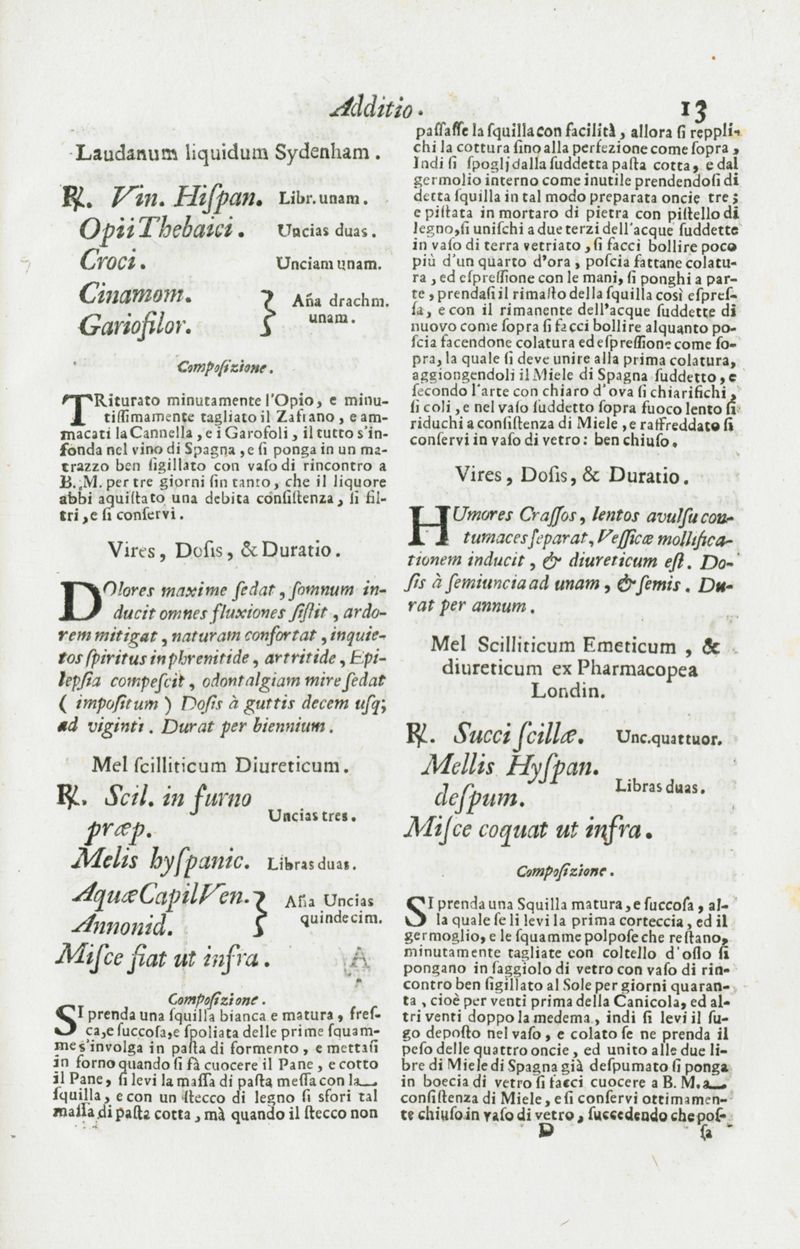 Additio.
13
Laudanum liquidum Sydenham.
℞. Vin. Hiſpan. Libr. unam.
Opii Thebaici. Uncias duas.
Croci. Unciam unam.
Cinamom. Aña drachm.
Gariofilor. unam.
Compoſizione.
TRiturato minutamente l'Opio, e minu-
tiſſimamente tagliato il Zafrano, e am-
macati la Cannella, e i Garofoli, il tutto s'in-
fonda nel vino di Spagna, e ſi ponga in un ma-
trazzo ben ſigillato con vaſo di rincontro a
B. M. per tre giorni ſin tanto, che il liquore
abbi aquiſtato una debita conſiſtenza, ſi fil-
tri, e ſi conſervi.
Vires, Doſis, & Duratio.
DOlores maxime ſedat, ſomnum in-
ducit omnes fluxiones ſiſtit, ardo-
rem mitigat, naturam confortat, inquie-
tos ſpiritus in phrenitide, artritide, Epi-
lepſia compeſcit, odontalgiam mire ſedat
( impoſitum ) Doſis à guttis decem uſq;
ad viginti. Durat per biennium.
Mel ſcilliticum Diureticum.
℞. Scil. in furno
præp. Uncias tres.
Melis hyſpanic. Libras duas.
Aquæ Capil Ven. Aña Uncias
Annonid. quindecim.
Miſce fiat ut infra.
Compoſizione.
SI prenda una ſquilla bianca e matura, freſ-
ca, e ſuccoſa, e ſpoliata delle prime ſquam-
me s'involga in paſta di formento, e mettaſi
in forno quando ſi fà cuocere il Pane, e cotto
il Pane, ſi levi la maſſa di paſta meſſa con la
ſquilla, e con un ſtecco di legno ſi sfori tal
maſſa di paſta cotta, mà quando il ſtecco non
paſſaſſe la ſquilla con facilità, allora ſi reppli-
chi la cottura ſino alla perfezione come ſopra,
Indi ſi ſpoglj dalla ſuddetta paſta cotta, e dal
germolio interno come inutile prendendoſi di
detta ſquilla in tal modo preparata oncie tre;
e piſtata in mortaro di pietra con piſtello di
legno, ſi uniſchi a due terzi dell'acque ſuddette
in vaſo di terra vetriato, ſi facci bollire poco
più d'un quarto d'ora, poſcia fattane colatu-
ra, ed eſpreſſione con le mani, ſi ponghi a par-
te, prendaſi il rimaſto della ſquilla così eſpreſ-
ſa, e con il rimanente dell'acque ſuddette di
nuovo come ſopra ſi facci bollire alquanto po-
ſcia facendone colatura ed eſpreſſione come ſo-
pra, la quale ſi deve unire alla prima colatura,
aggiongendoli il Miele di Spagna ſuddetto, e
ſecondo l'arte con chiaro d'ova ſi chiarifichi,
ſi coli, e nel vaſo ſuddetto ſopra fuoco lento ſi
riduchi a conſiſtenza di Miele, e raffreddato ſi
conſervi in vaſo di vetro: ben chiuſo.
Vires, Doſis, & Duratio.
HUmores Craſſos, lentos avulſu con-
tumaces ſeparat, Veſſicæ mollifica-
tionem inducit, & diureticum eſt. Do-
ſis à ſemiuncia ad unam, & ſemis. Du-
rat per annum.
Mel Scilliticum Emeticum, &
diureticum ex Pharmacopea
Londin.
℞. Succi ſcillæ. Unc. quattuor.
Mellis Hyſpan.
deſpum. Libras duas.
Miſce coquat ut infra.
Compoſizione.
SI prenda una Squilla matura, e ſuccoſa, al-
la quale ſe li levi la prima corteccia, ed il
germoglio, e le ſquamme polpoſe che reſtano,
minutamente tagliate con coltello d'oſſo ſi
pongano in ſaggiolo di vetro con vaſo di rin-
contro ben ſigillato al Sole per giorni quaran-
ta, cioè per venti prima della Canicola, ed al-
tri venti doppo la medema, indi ſi levi il ſu-
go depoſto nel vaſo, e colato ſe ne prenda il
peſo delle quattro oncie, ed unito alle due li-
bre di Miele di Spagna già deſpumato ſi ponga
in boccia di vetro ſi facci cuocere a B. M. a
conſiſtenza di Miele, e ſi conſervi ottimamen-
te chiuſo in vaſo di vetro, ſuccedendo che poſ-
D
ſa